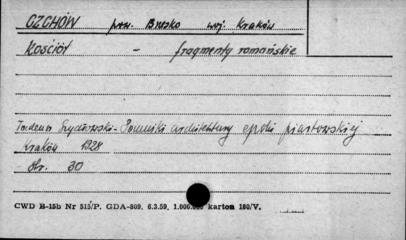 CZCHÓW pow. Brzesko woj. Kraków
Kościół - fragmenty romańskie
Tadeusz Szydłowski - Pomniki architektury epoki piastowskiej
Kraków 1928
str. 30
CWD B-15b Nr 515/P. GDA-809. 6.3.59. 1.000.000 karton 180/V.